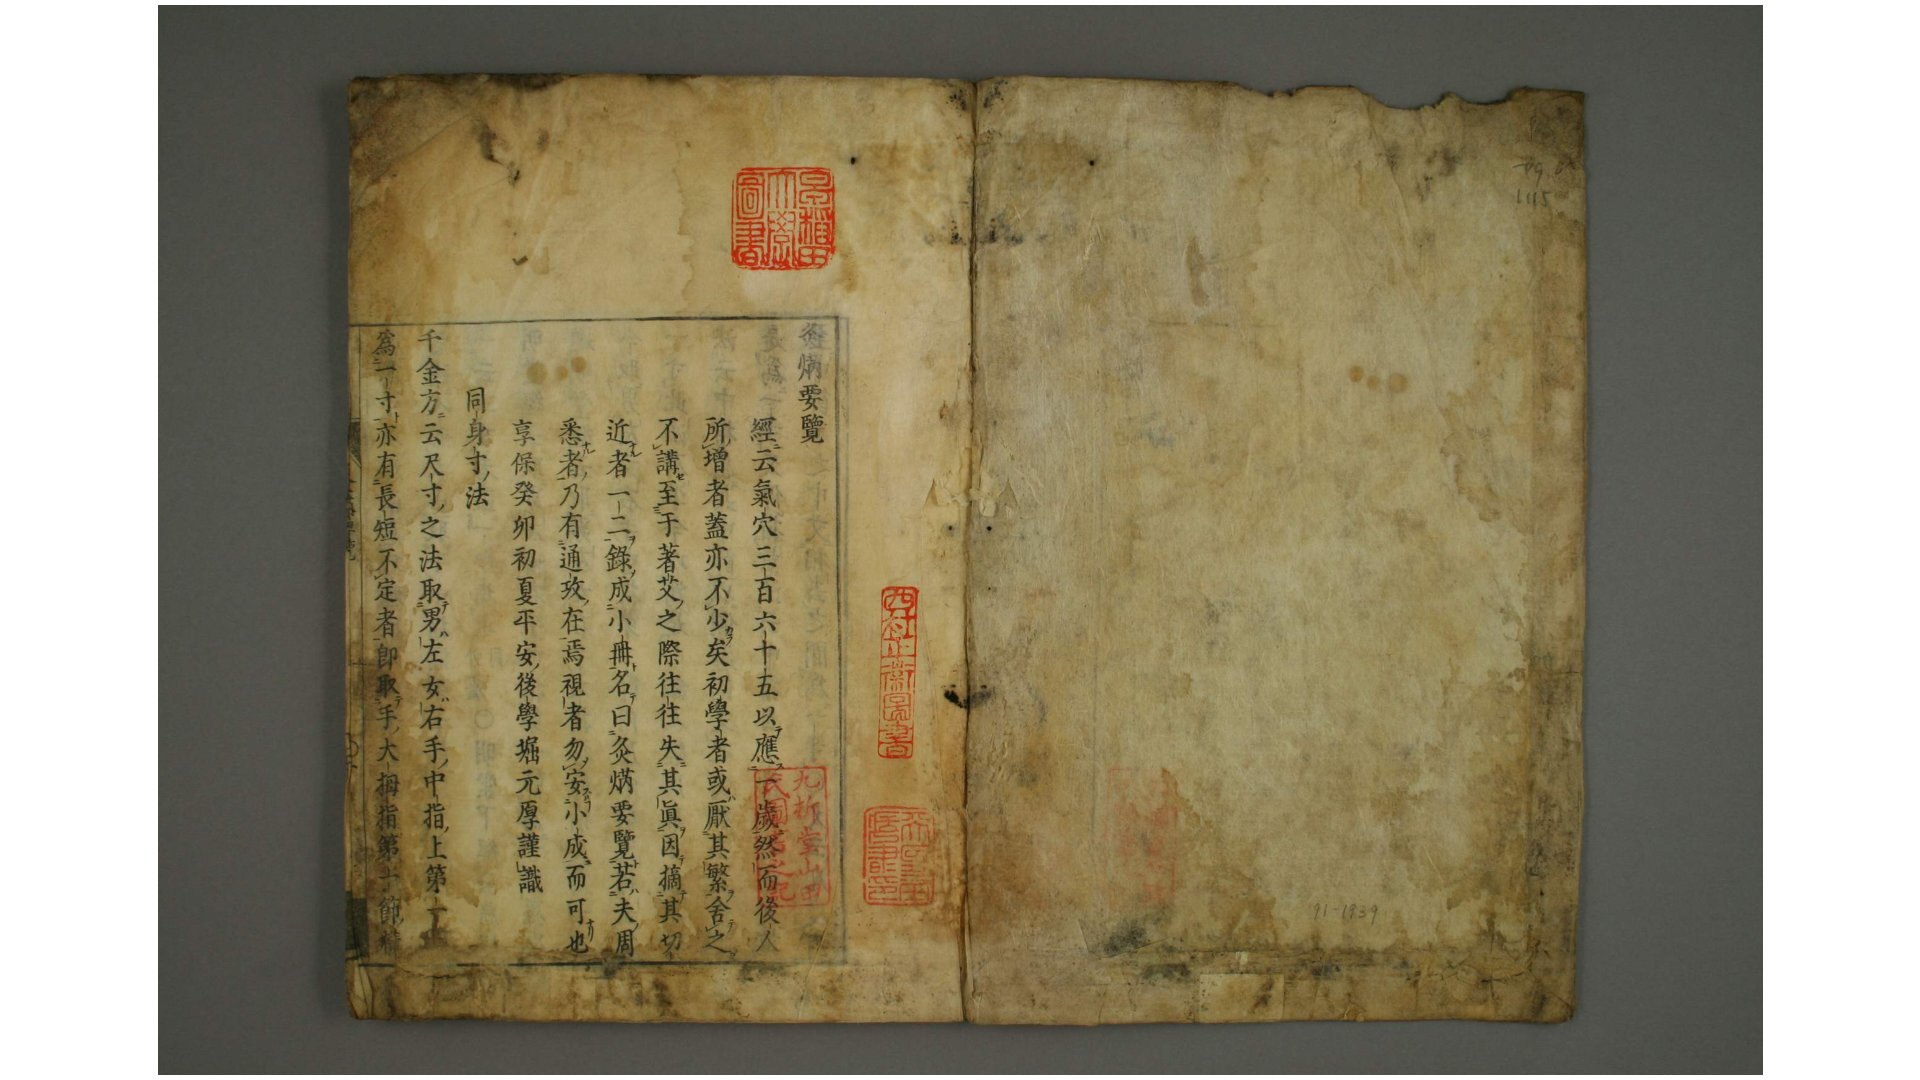 灸焫要覽
經云氣穴三百六十五以應一歲然而後人
所增者蓋亦不少矣初學者或厭其繁舍之
不講至于著艾之際往往失其眞因摘其切
近者一二錄成小冊名曰灸焫要覽若夫周
悉者乃有通攷在焉視者勿安小成而可也
享保癸卯初夏平安後學堀元厚謹識
同身寸法
千金方云尺寸之法取男左女右手中指上第一
爲一寸亦有長短不定者卽取手大拇指第一節
早稲田大學圖書
九折堂山田
91-1939
1115